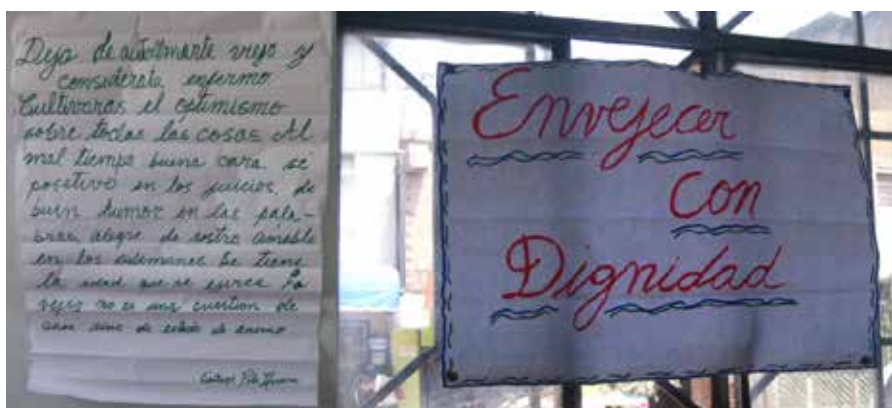 Deja de
viejo y
considerate enfermo
Cultivaras el optimismo
sobre todas las cosas Al
mal tiempo buena cara, sé
positivo en los juicios, de
buen humor en las pala-
bras, alegre de rostro amable
en los ademanes Se tiene
la edad que se
vejes no es una cuestion de
sino de estado de animo
Envejecer
Con
Dignidad